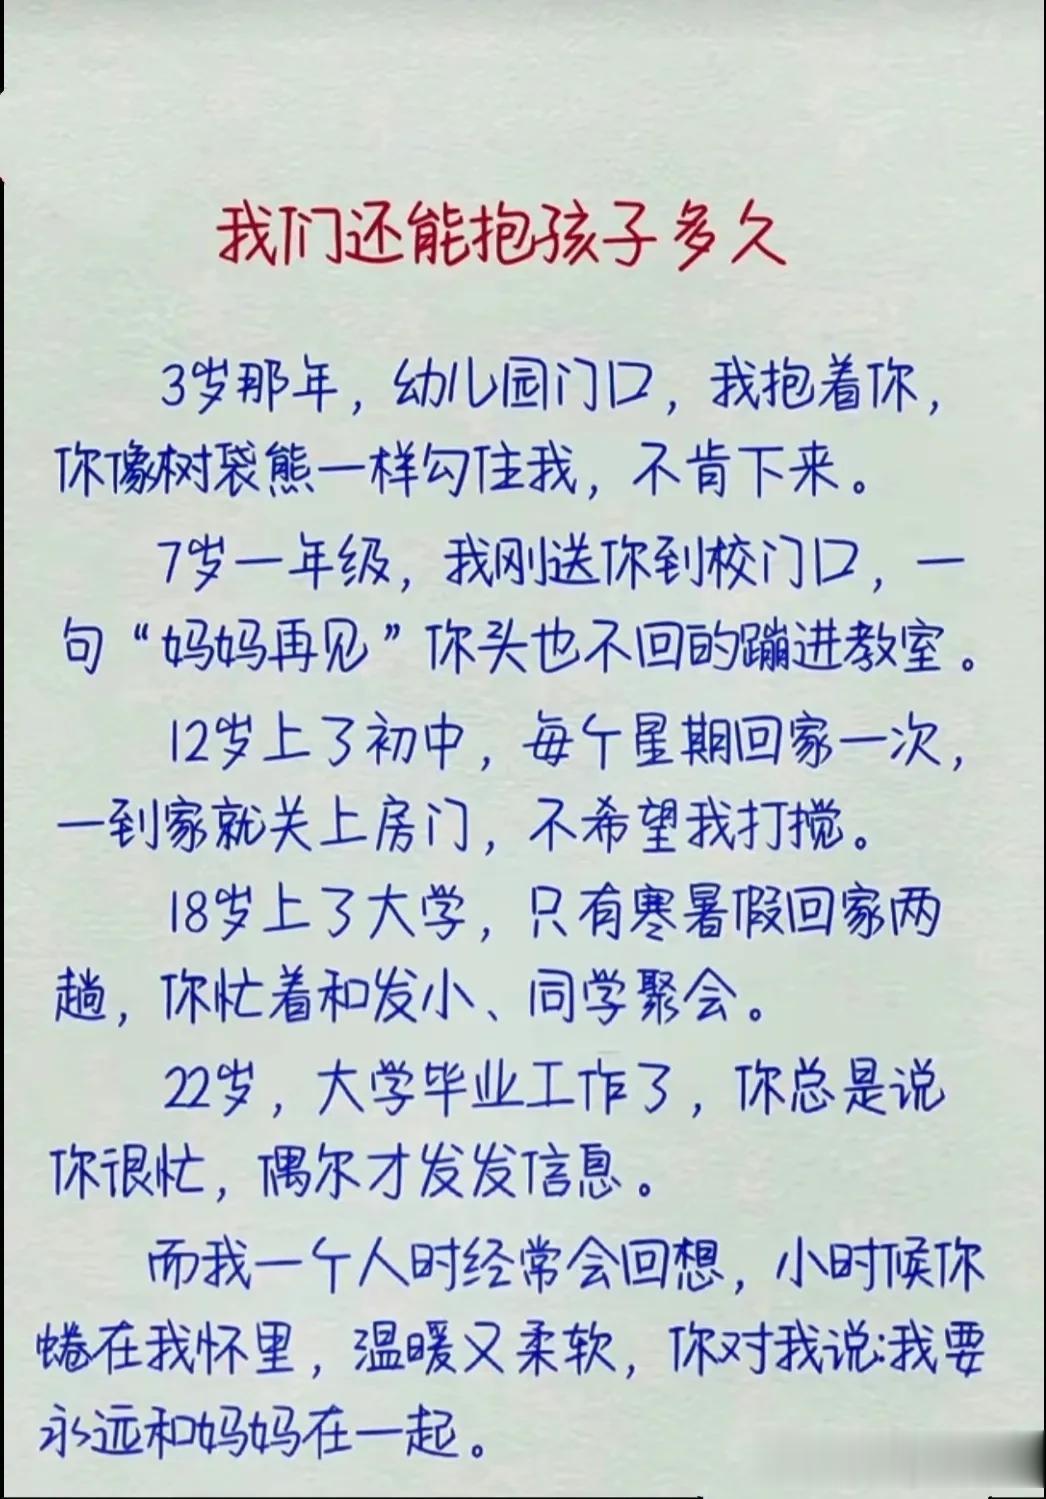 我们还能抱孩子多久
3岁那年，幼儿园门口，我抱着你，
你像树袋熊一样勾住我，不肯下来。
7岁一年级，我刚送你到校门口，一
句“妈妈再见”你头也不回的蹦进教室。
12岁上了初中，每个星期回家一次，
一到家就关上房门，不希望我打搅。
18岁上了大学，只有寒暑假回家两
趟，你忙着和发小、同学聚会。
22岁，大学毕业工作了，你总是说
你很忙，偶尔才发发信息。
而我一个人时经常会回想，小时候你
蜷在我怀里，温暖又柔软，你对我说:我要
永远和妈妈在一起。